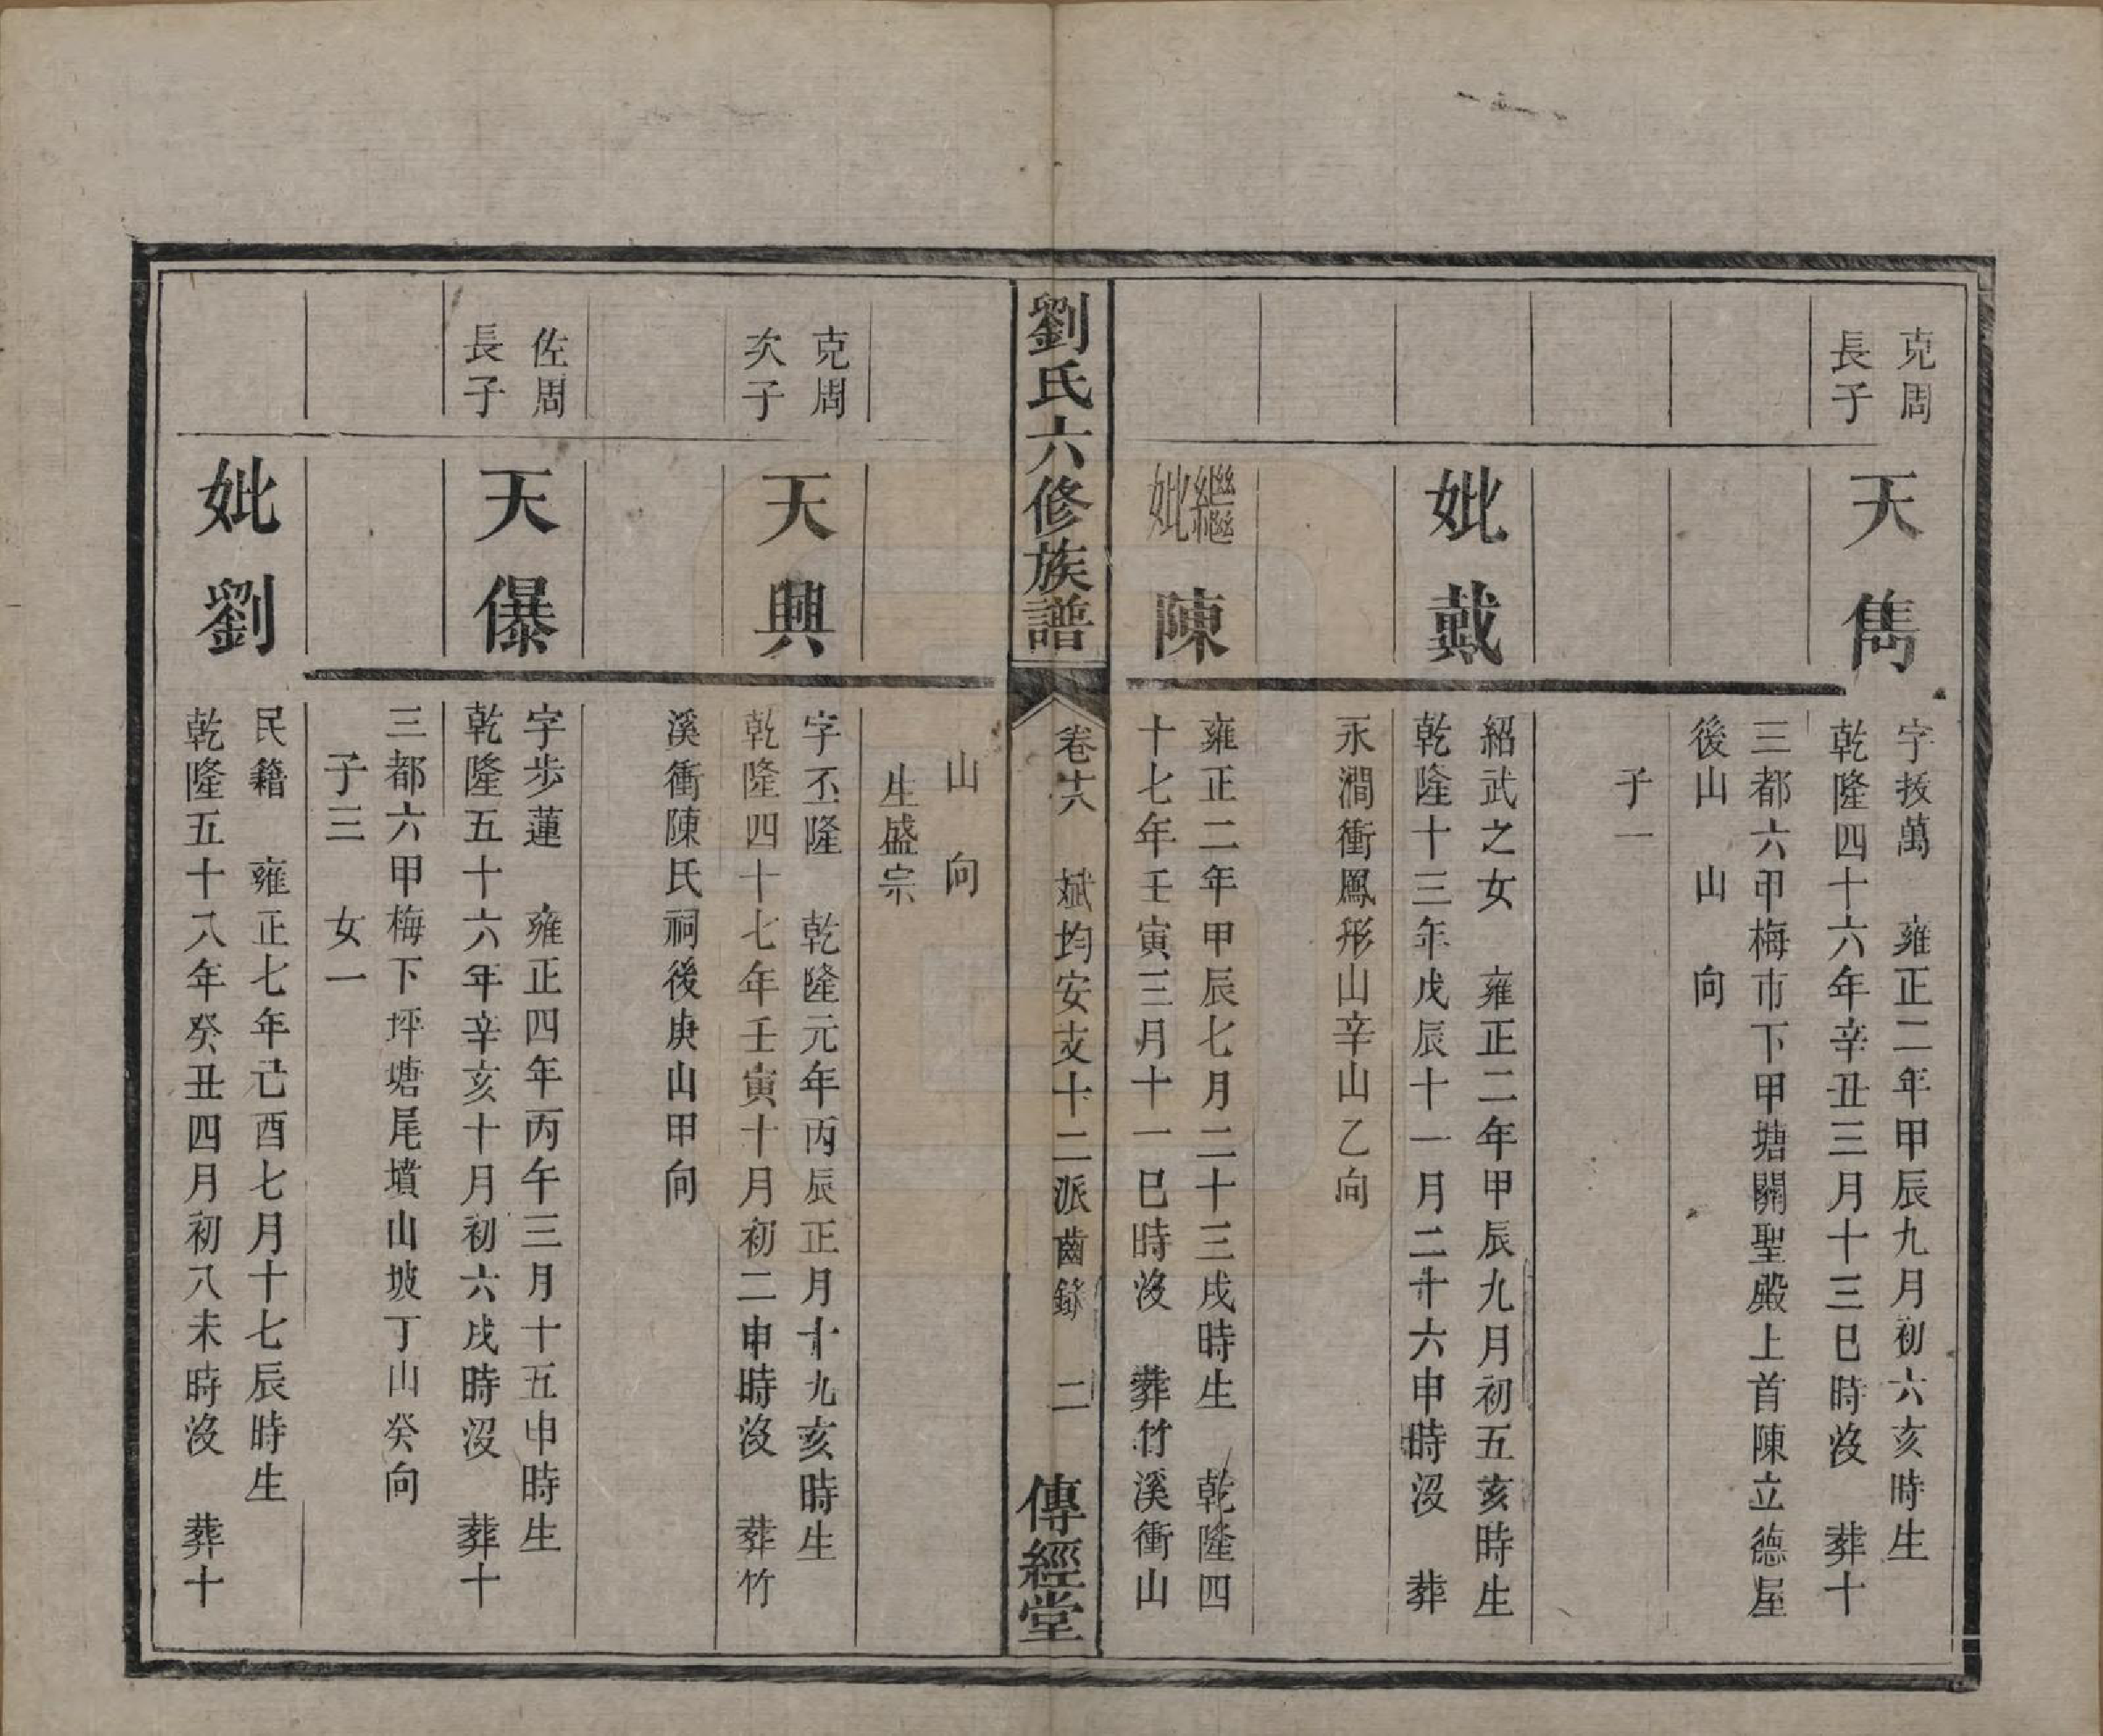 克周
長子
天雋
字抜萬　雍正二年甲辰九月初六亥時生
乾隆四十六年辛丑三月十三巳時沒　葬十
三都六甲梅市下甲塘關聖殿上首陳立德屋
後山　山　向
子一
妣戴
紹武之女　雍正二年甲辰九月初五亥時生
乾隆十三年戊辰十一月二十六申時沒　葬
永澗衝鳳形山辛山乙向
繼妣陳
雍正二年甲辰七月二十三戌時生　乾隆四
十七年壬寅三月十一巳時沒　葬竹溪衝山
劉氏六修族譜
卷十六　斌均安支十二派齒錄　二
傳經堂
山　向
生盛宗
克周
次子
天興
字丕隆　乾隆元年丙辰正月十九亥時生
乾隆四十七年壬寅十月初二申時沒　葬竹
溪衝陳氏祠後庚山甲向
佐周
長子
天儤
字步蓮　雍正四年丙午三月十五申時生
乾隆五十六年辛亥十月初六戌時沒　葬十
三都六甲梅下坪塘尾墳山坡丁山癸向
子三　女一
妣劉
民籍　雍正七年己酉七月十七辰時生
乾隆五十八年癸丑四月初八未時沒　葬十